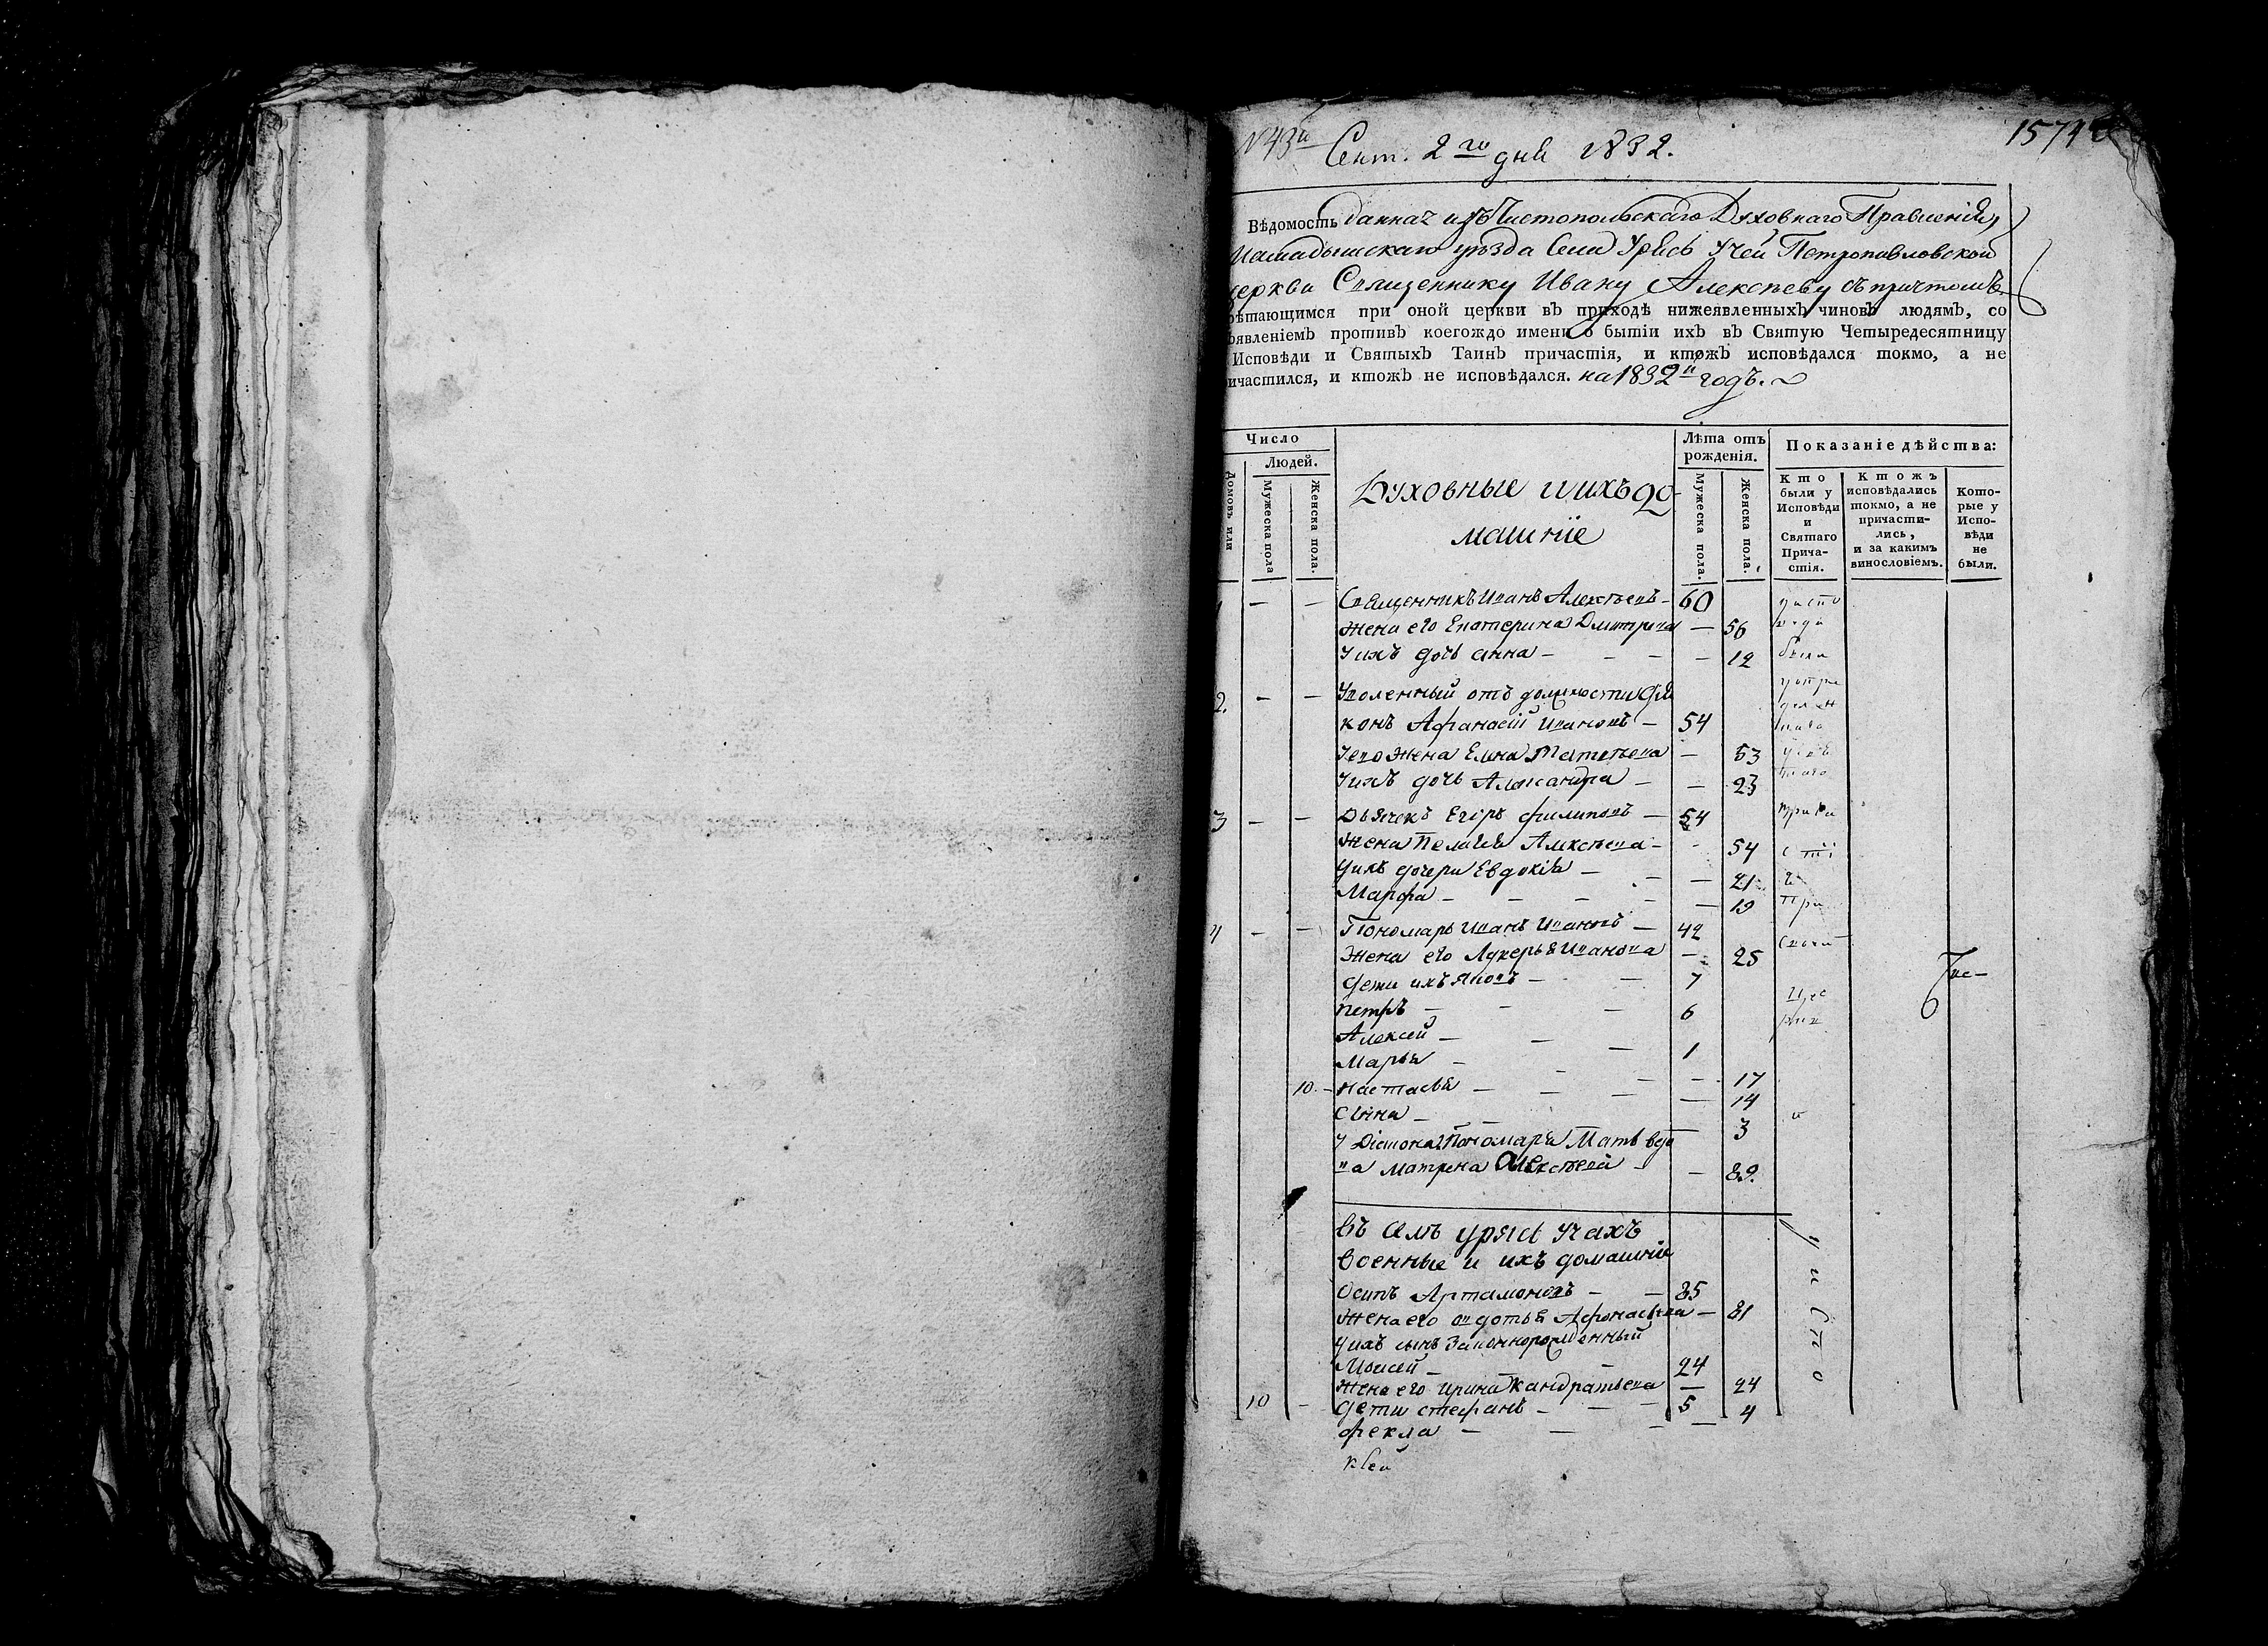 N 43й
Сент. 2го дня 1832.
1574
Вѣдомость данная изъ Чистопольскаго Духовнаго Правленія,
Мамадышскаго уѣзда Села Урясь Учей Петропавловской
церкви Священнику Ивану Алексѣеву съ причтомъ
рѣтающимся при оной церкви въ приходѣ нижеявленныхъ чиновъ людямъ, со
ъявленіемъ противъ коегождо имени о бытіи ихъ въ Святую Четыредесятницу
Исповѣди и Святыхъ Таинъ причастія, и ктожъ исповѣдался токмо, а не
ичастился, и ктожъ не исповѣдался. на 1832й годъ.
Число
Людей.
Домовъ или
Мужеска пола
Женска пола.
Духовные и ихъ до-
машніе
Лѣта отъ
рожденія.
Мужеска пола.
Женска пола.
Показаніе дѣйства:
Кто
были у
Исповѣди
и
Святаго
Прича-
стія.
Ктожъ
исповѣдались
токмо, а не
причасти-
лись,
и за какимъ
винословіемъ.
Кото-
рые у
Испо-
вѣди
не
были.
1 — — Священникъ Иванъ Алексѣевъ — 60
Жена его Екатерина Дмитріева — 56
У ихъ дочь Анна — — — — 12
2. — — Уволенный отъ должности дья
конъ Афанасій Ивановъ — 54
У его жена Елена Матвѣева — 53
У ихъ дочь Александра — — 23
3 — — Дьячекъ Егоръ Филиповъ — 54
Жена Пелагея Алексѣева — - 54
У ихъ дочери Евдокія — — — 21
Марфа — — — — — — 19
4 — — Пономарь Иванъ Ивановъ — 42
Жена его Лукерья Иванова — 25
Дети ихъ Яковъ — — 7
Петръ — — — 6
Алексей — — — 1
Марья — — — — 17
10. — Настасья — — — — 14
Анна — — — 3
У Діакона Пономаря Мать вдо
ва Матрена Алексѣева — — 89.
Въ Селѣ Уряси Учахъ
Военные и ихъ домашніе
Осипъ Артамоновъ — — 85
Жена его Авдотья Афонасьева — 81
У ихъ сынъ Законнорожденный
Моисей — — 24
Жена его Ирина Кандратьева — 24
10 — Дети Стефанъ — — — 5
Фекла — — — — 4